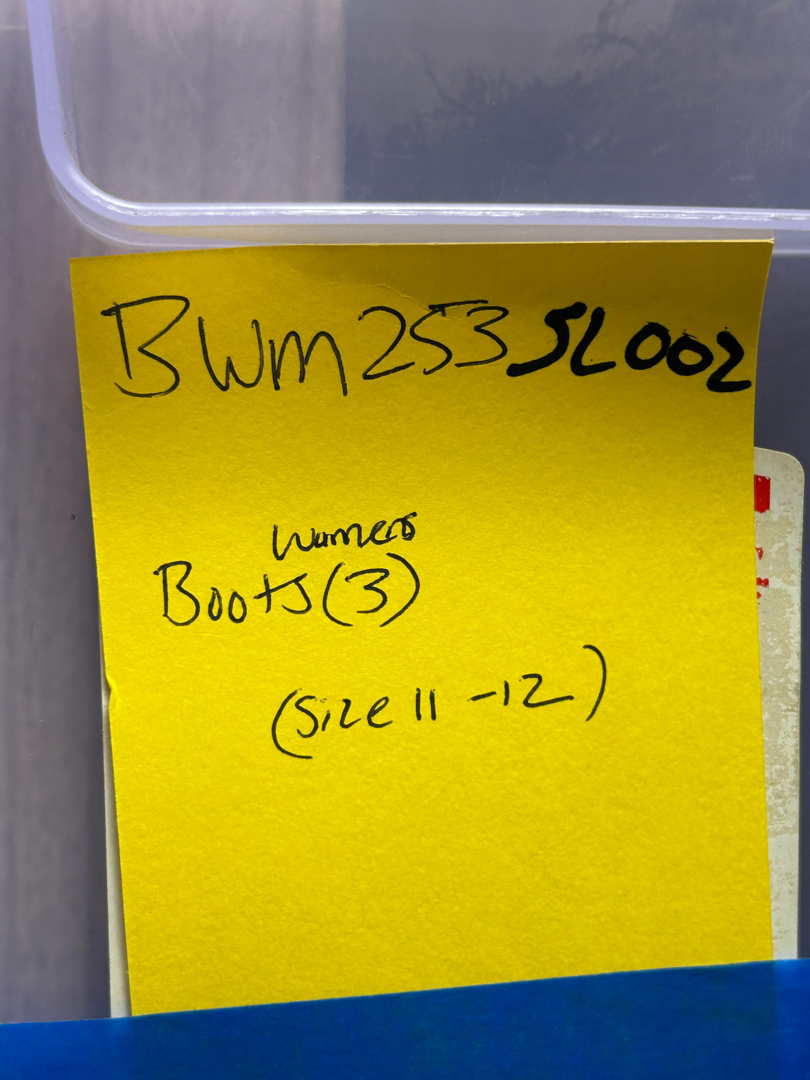 BWm253SL002
Womens
Boots(3)
(Size 11 -12)